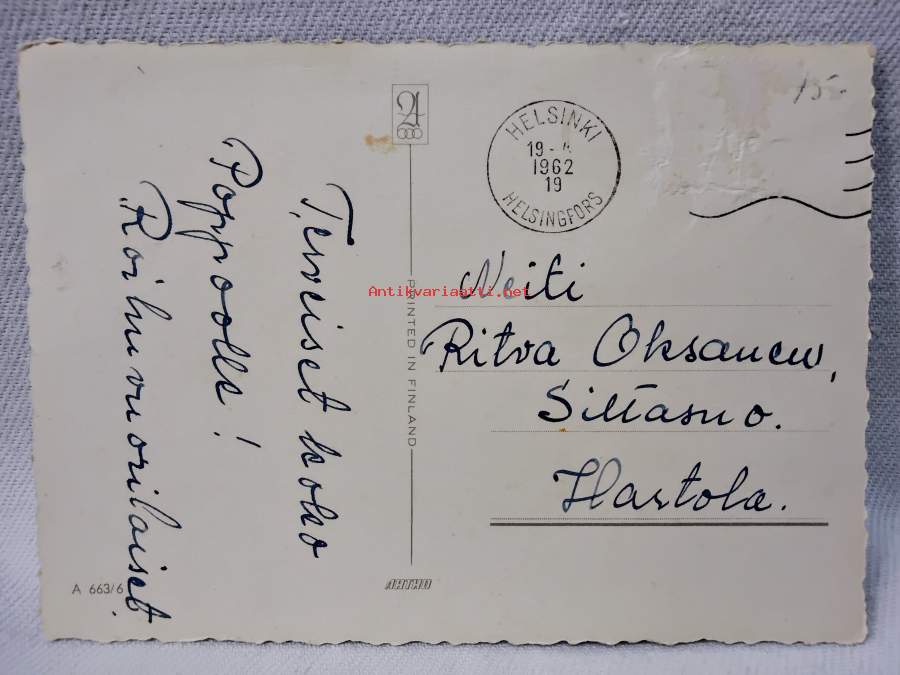 Terveiset koko
Poppoolle!
Roihuvuorilaiset.
HELSINKI
19
1962
19
HELSINGFORS
15-
Neiti
Ritva Oksanen,
Siltasuo.
Hartola.
PRINTED IN FINLAND
A 663/6
ARTKO
Antikvariaatti.net